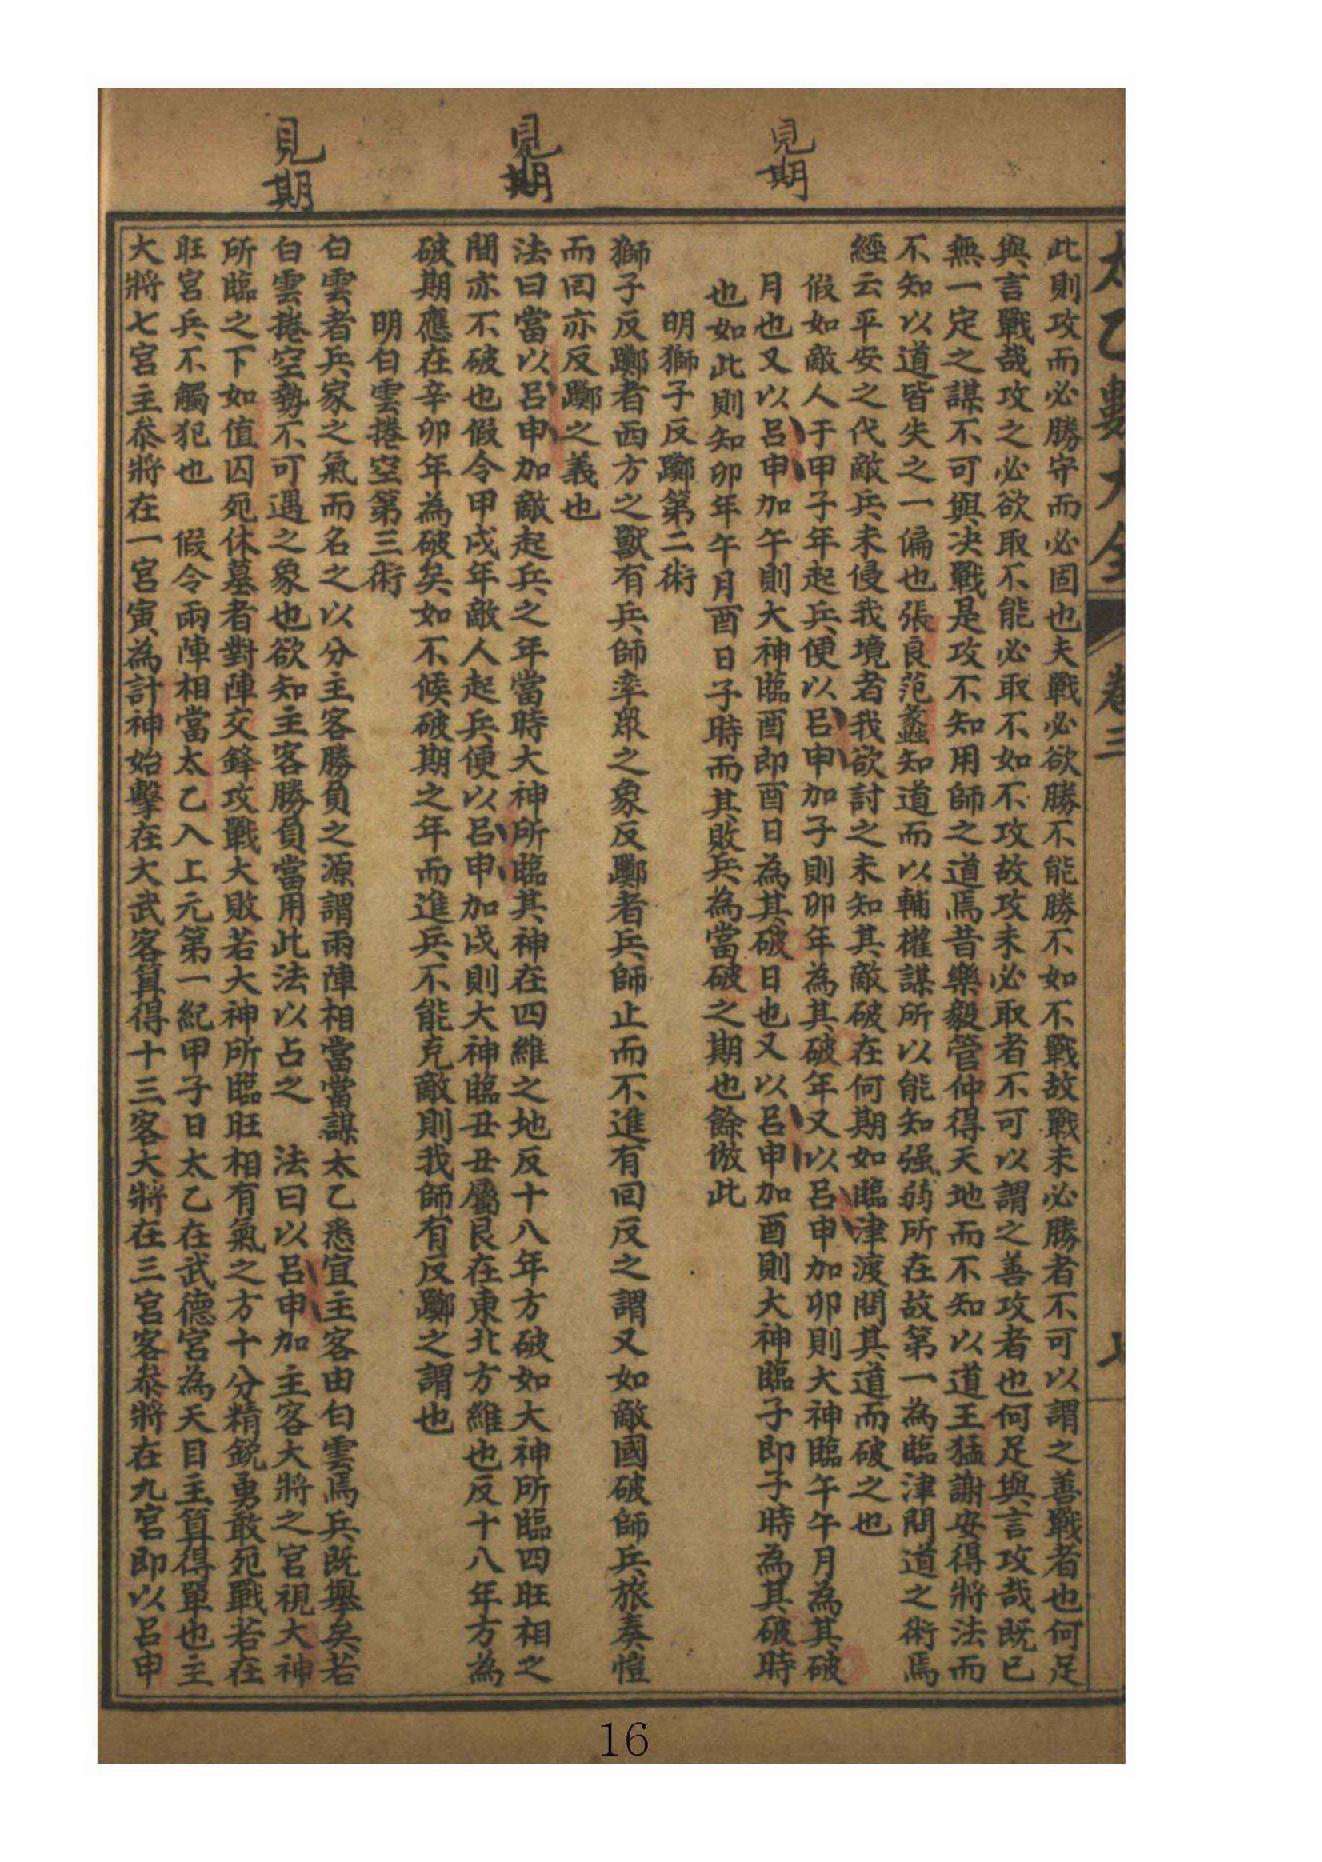 見期
見期
見期
太乙數大全 卷三 七
此則攻而必勝守而必固也夫戰必欲勝不能勝不如不戰故戰未必勝者不可以謂之善戰者也何足
與言戰哉攻之必欲取不能必取不如不攻故攻未必取者不可以謂之善攻者也何足與言攻哉既已
無一定之謀不可與决戰是攻不知用師之道焉昔樂毅管仲得天地而不知以道王猛謝安得將法而
不知以道皆失之一偏也張良范蠡知道而以輔權謀所以能知强弱所在故第一為臨津問道之術焉
經云平安之代敵兵未侵我境者我欲討之未知其敵破在何期如臨津渡問其道而破之也
假如敵人于甲子年起兵便以呂申加子則卯年為其破年又以呂申加卯則大神臨午午月為其破
月也又以呂申加午則大神臨酉即酉日為其破日也又以呂申加酉則大神臨子即子時為其破時
也如此則知卯年午月酉日子時而其敗兵為當破之期也餘倣此
明獅子反躑第二術
獅子反躑者西方之獸有兵師率衆之象反躑者兵師止而不進有回反之謂又如敵國破師兵旅奏愷
而回亦反躑之義也
法曰當以呂申加敵起兵之年當時大神所臨其神在四維之地反十八年方破如大神所臨四旺相之
間亦不破也假令甲戌年敵人起兵便以呂申加戌則大神臨丑丑屬艮在東北方維也反十八年方為
破期應在辛卯年為破矣如不候破期之年而進兵不能克敵則我師有反躑之謂也
明白雲捲空第三術
白雲者兵家之氣而名之以分主客勝負之源謂兩陣相當當謀太乙悉宜主客由白雲焉兵既舉矣若
白雲捲空勢不可遇之象也欲知主客勝負當用此法以占之　法曰以呂申加主客大將之宮視大神
所臨之下如值囚死休墓者對陣交鋒攻戰大敗若大神所臨旺相有氣之方十分精銳勇敢死戰若在
旺宮兵不觸犯也　假令兩陣相當太乙入上元第一紀甲子日太乙在武德宮為天目主算得單也主
大將七宮主叅將在一宮寅為計神始擊在大武客算得十三客大將在三宮客叅將在九宮即以呂申
16